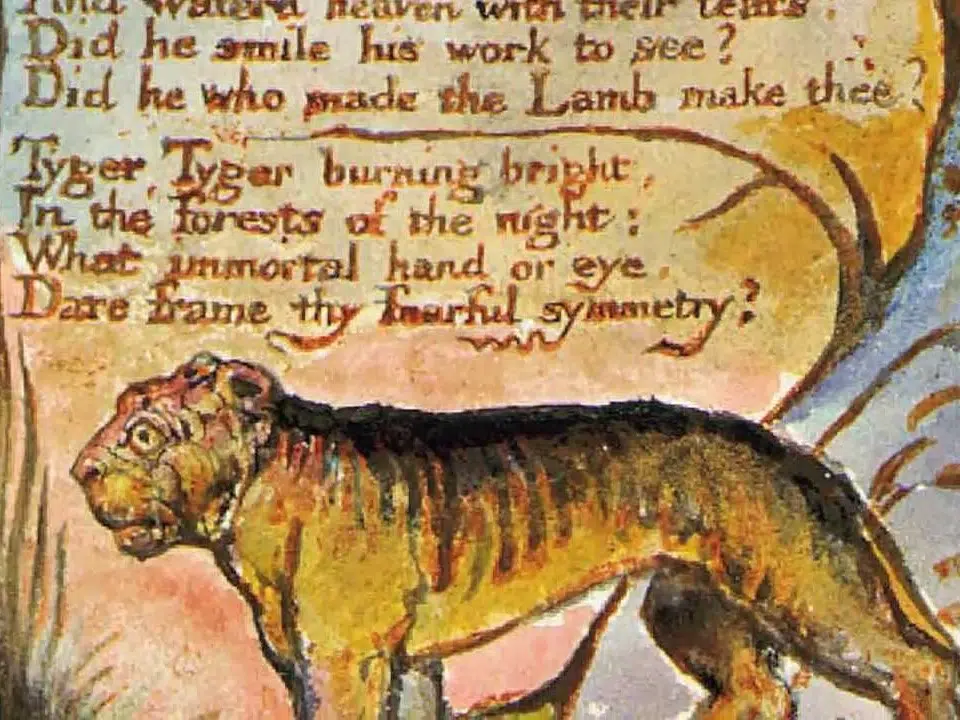 And water'd heaven with their tears:
Did he smile his work to see?
Did he who made the Lamb make thee?
Tyger Tyger burning bright,
In the forests of the night:
What immortal hand or eye,
Dare frame thy fearful symmetry?